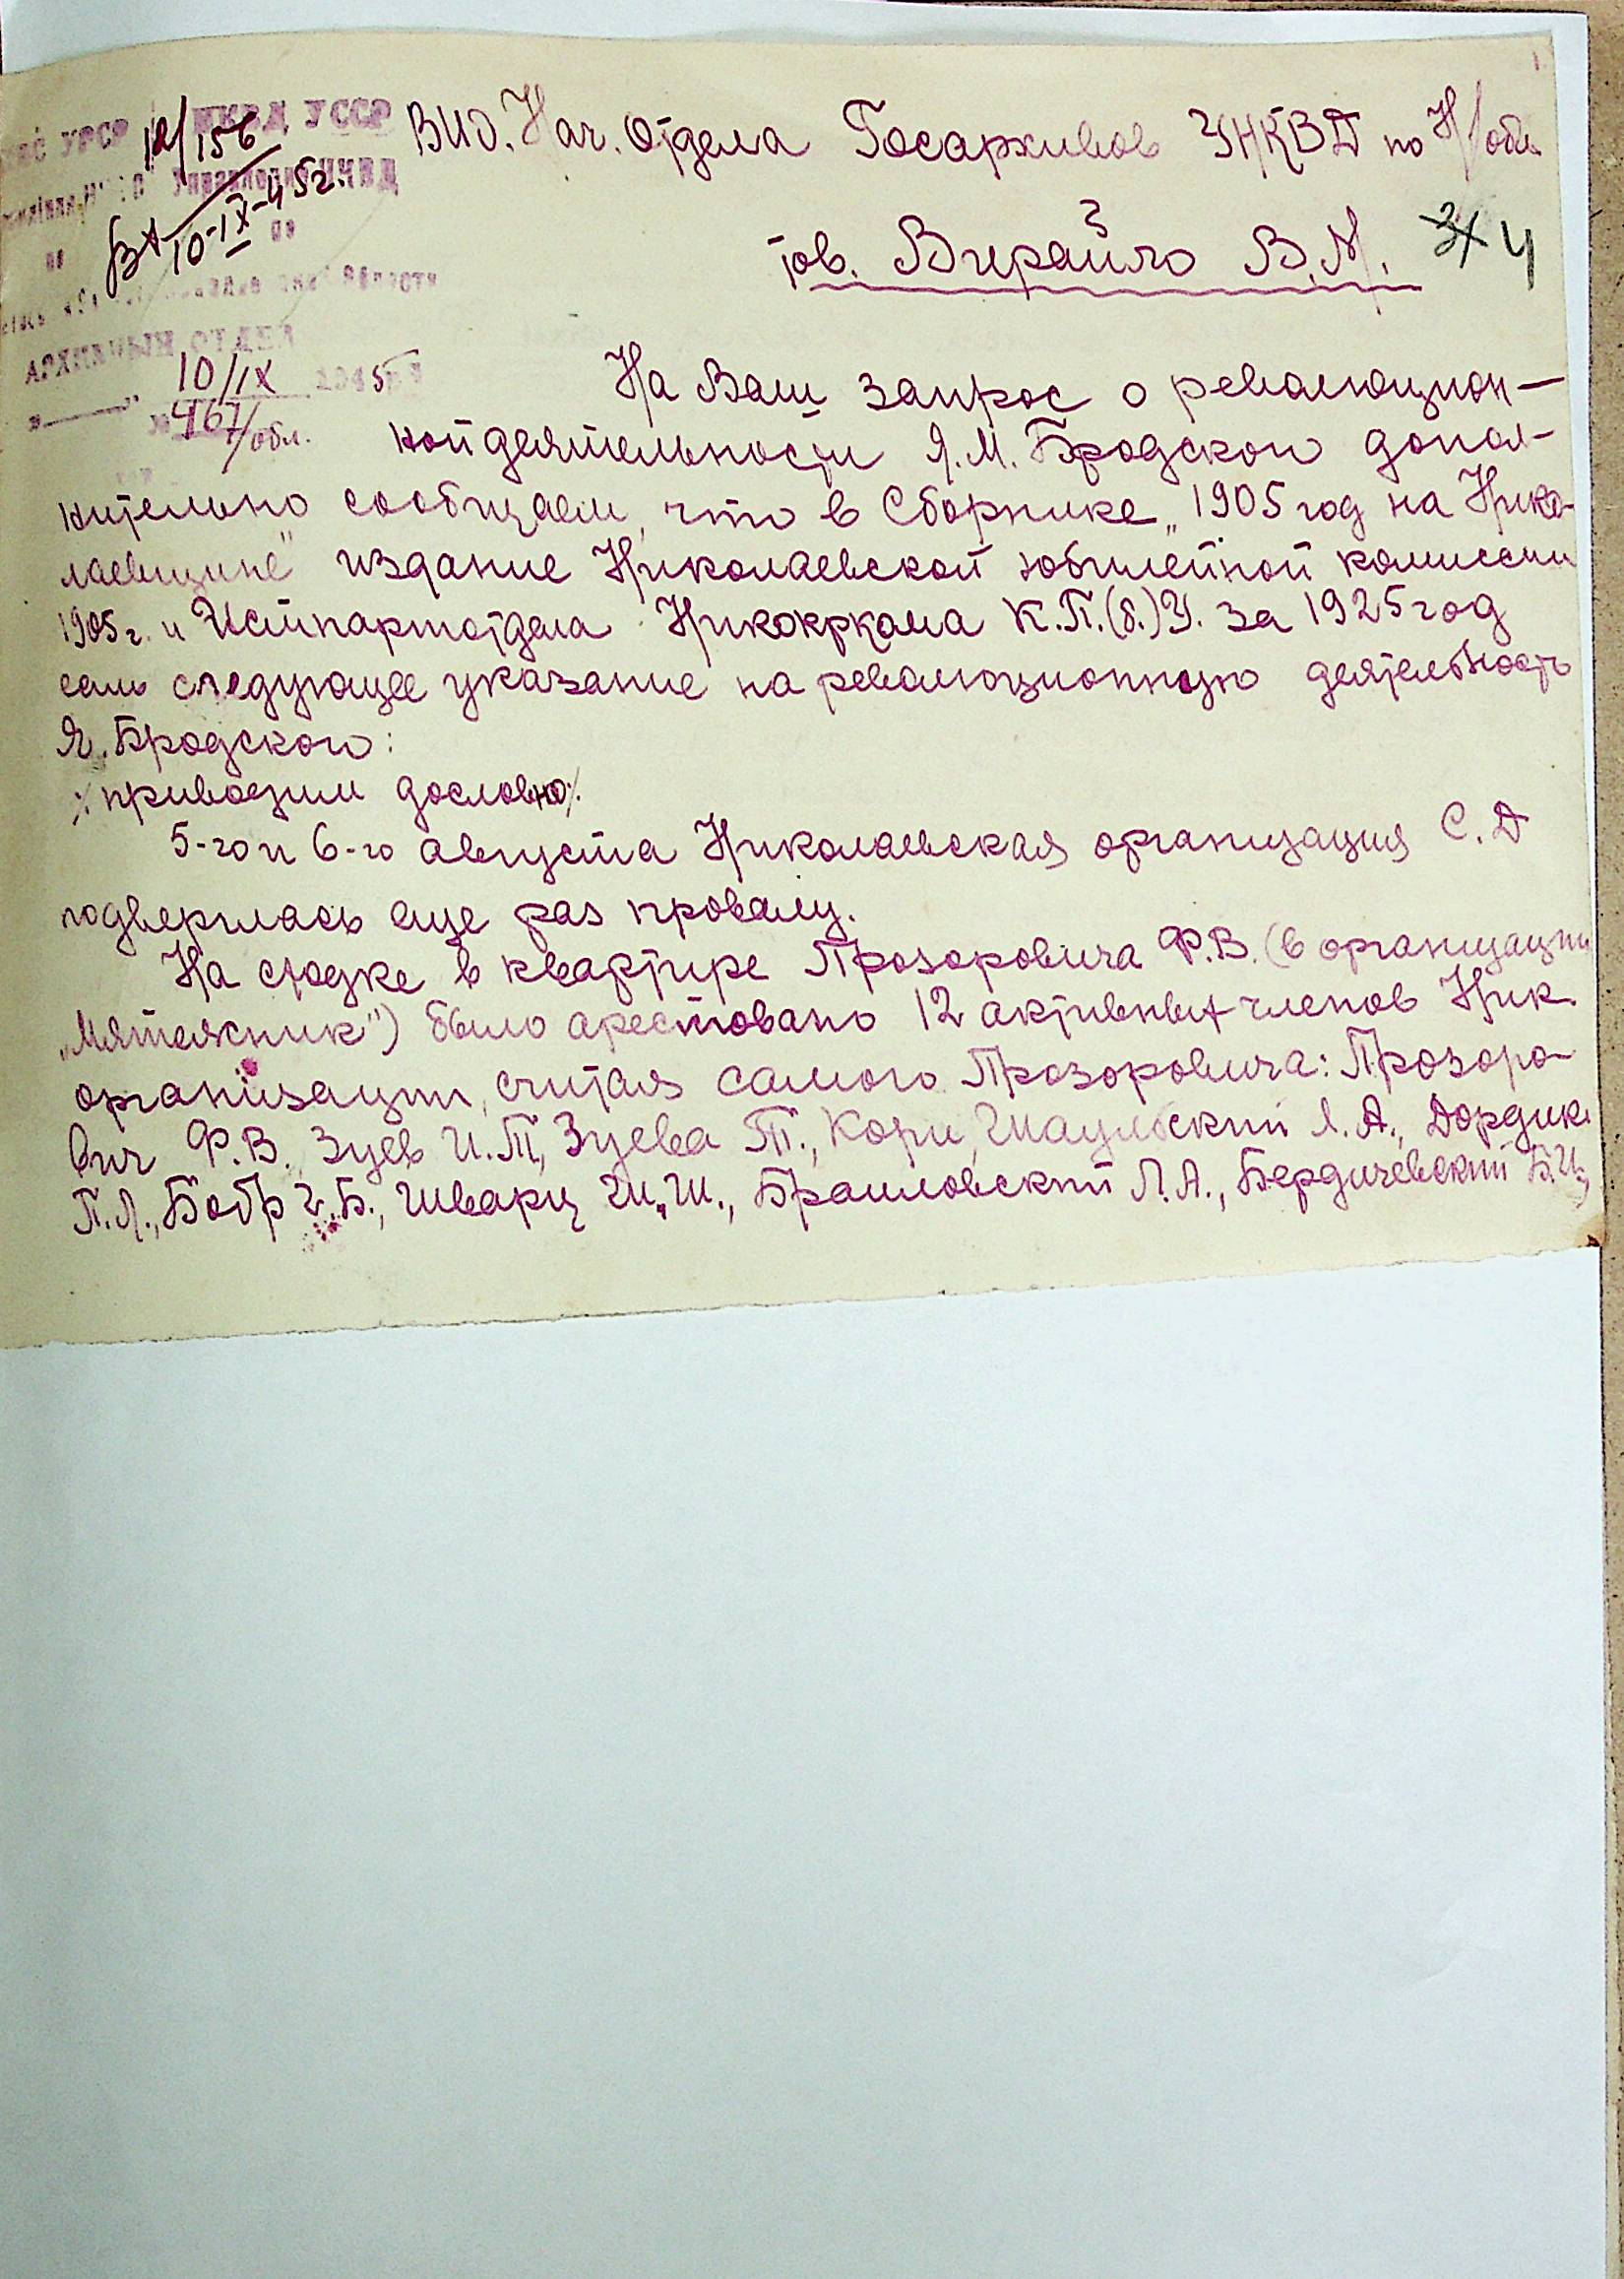 НКВД УССР
12/156
Вх 10-IX-45г.
АРХИВНЫЙ ОТДЕЛ
10/IX 1945
№ 467/обл.
ВИД. Нач. Отдела Госархивов УНКВД по Н/обл.
тов. Вирайло В.М.
4
На Ваш запрос о революцион-
ной деятельности Я.М. Бродского допол-
нительно сообщаем, что в Сборнике „1905 год на Нико-
лаевщине" издание Николаевской юбилейной комиссии
1905 г. и Истпартотдела Никокркома К.П.(б.)У. за 1925 год
есть следующее указание на революционную деятельность
Я. Бродского:
:/приводим дословно/.
5-го и 6-го августа Николаевская организация С.Д
подверглась еще раз провалу.
На сходке в квартире Прозоровича Ф.В. (в организации
„Мятежник") было арестовано 12 активных членов Ник.
организации, считая самого Прозоровича: Прозоро-
вич Ф.В., Зуев И.Т., Зуева Т., Корн, Шаульский Я.А., Дордик
П.Л., Бобр Г.Б., Шварц Ш.Ш., Браиловский Л.А., Бердичевский Б.И.,